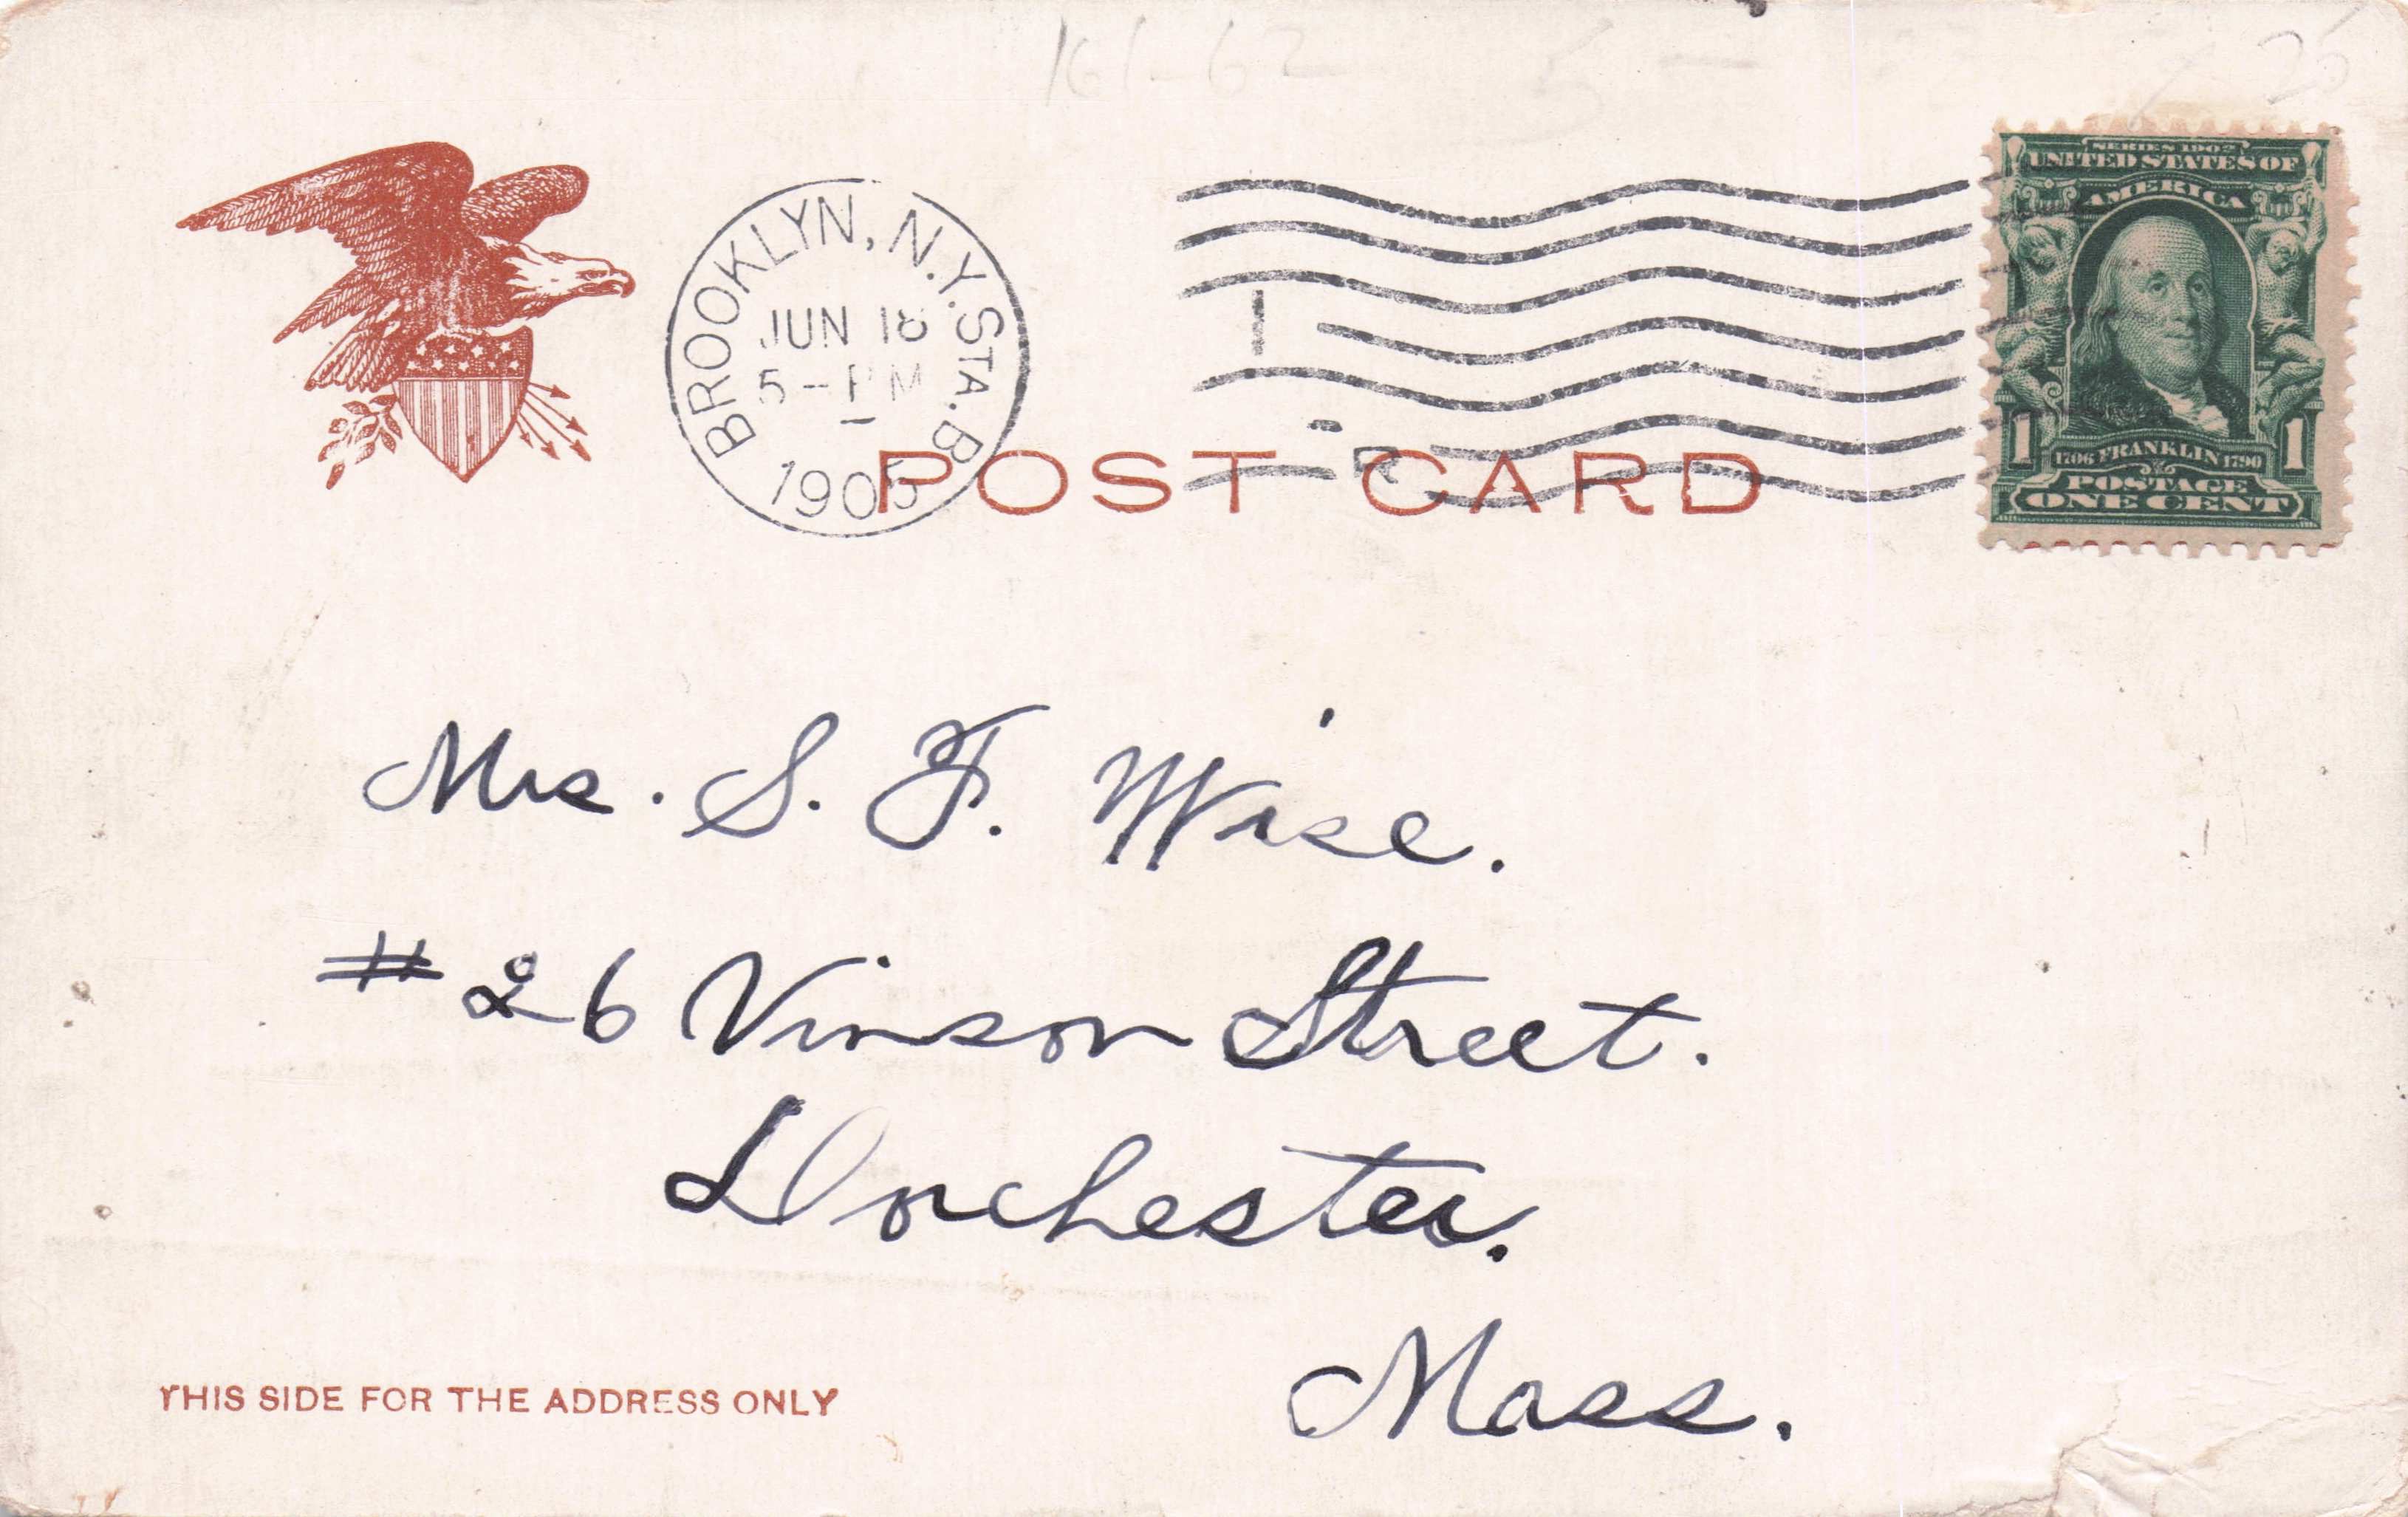 161-62
5 -
25
SERIES 1902
UNITED STATES OF
AMERICA
BROOKLYN, N.Y. STA. B
JUN 18
5 - PM
1905
1
1 1706 FRANKLIN 1790 1
POSTAGE
ONE CENT
POST CARD
Mrs. S. F. Wise.
# 26 Vinson Street.
Dorchester.
Mass.
THIS SIDE FOR THE ADDRESS ONLY